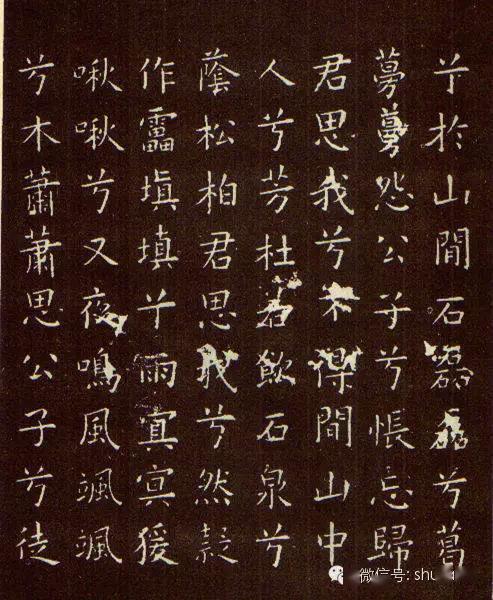 兮於山間石磊磊兮葛
蔓蔓怨公子兮悵忘歸
君思我兮不得間山中
人兮芳杜若飲石泉兮
蔭松柏君思我兮然疑
作靁填填兮雨冥冥猨
啾啾兮又夜鳴風颯颯
兮木蕭蕭思公子兮徒
微信号: